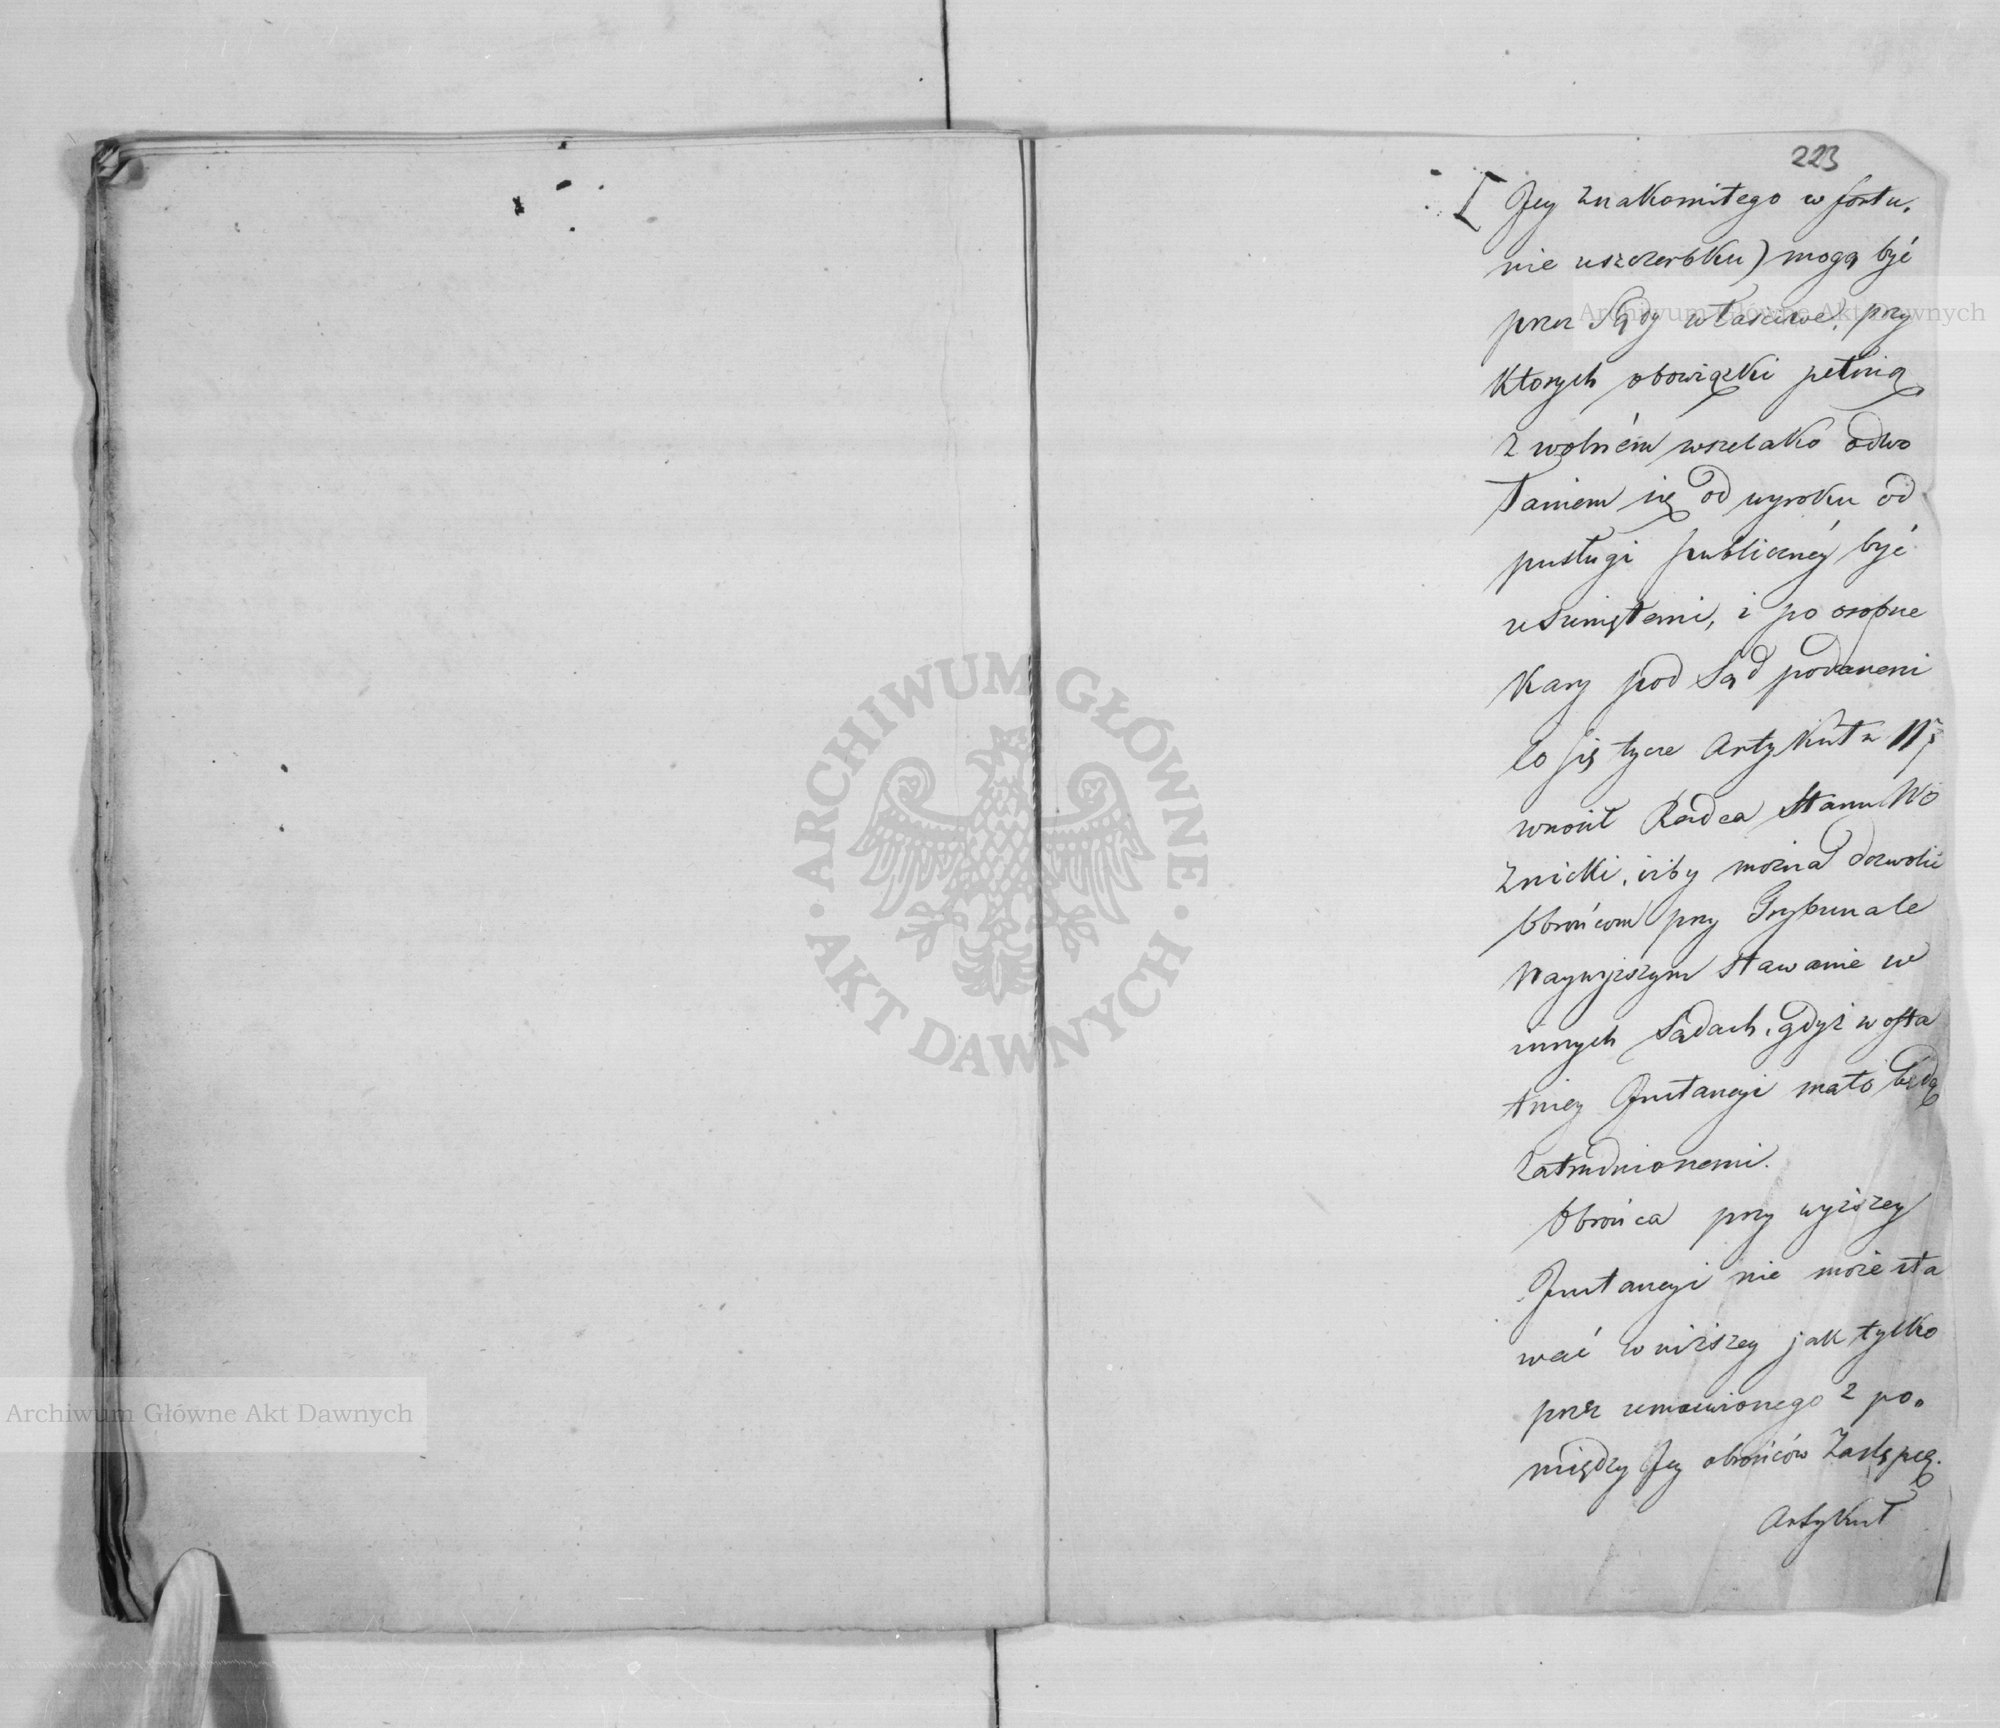 223
[ Jey znakomitego w fortu.
nie uszczerbku) mogą być
przez Sądy właściwe, przy
których obowiązki pełnią
z wolném wszelako odwo
łaniem się od wyroku od
pusługi publicznéy być
usuniętemi, i po osobne
Kary pod Sąd podanemi
Co się tycze Artykułu 117
wnosił Radca Stanu Wo
źnicki, iżby można dozwolić
Obrońcom przy Trybunale
Naywyższym stawanie w
innych Sądach, gdyż w osta
tniey Instancyi mało będą
zatrudnionemi.
Obrońca przy wyższey
Instancyi nie może sta
wać w niższey jak tylko
przez umowionego z po
między Jey obrońców Zastępcę.
Artykuł
Archiwum Główne Akt Dawnych
Archiwum Główne Akt Dawnych
ARCHIWUM GŁÓWNE
· AKT DAWNYCH ·